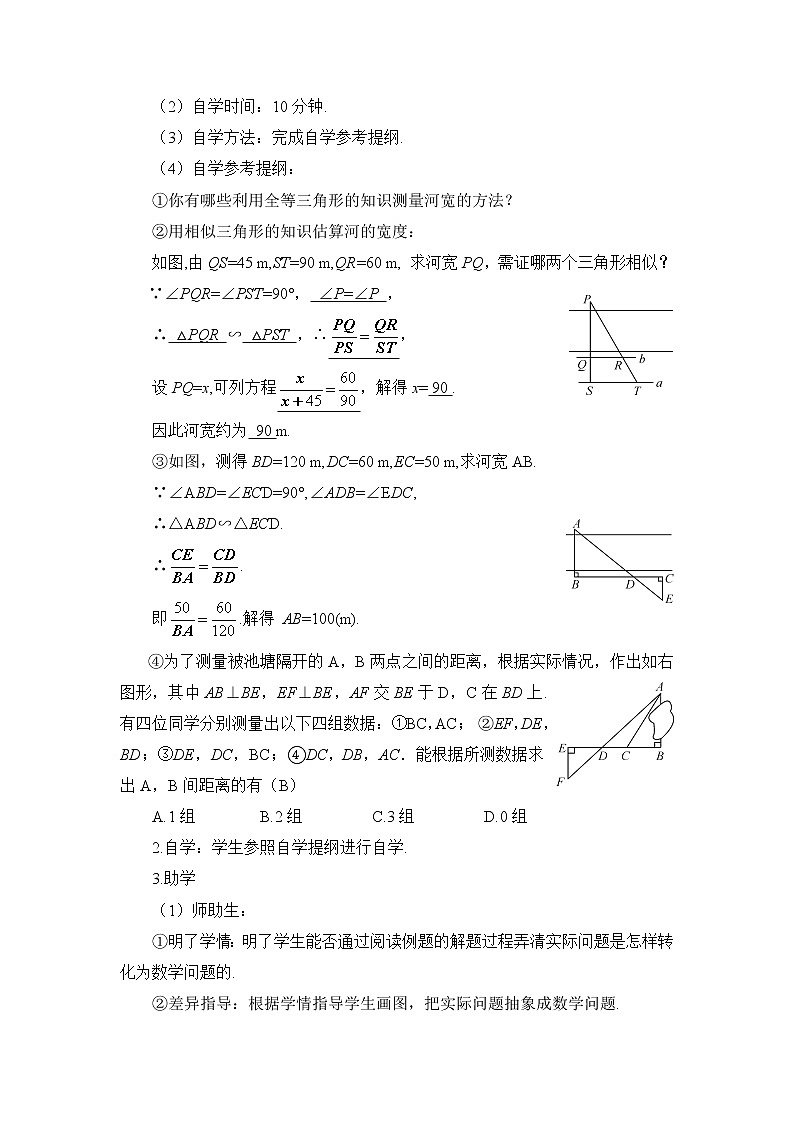 （2）自学时间：10 分钟.
（3）自学方法：完成自学参考提纲.
（4）自学参考提纲：
①你有哪些利用全等三角形的知识测量河宽的方法？
②用相似三角形的知识估算河的宽度：
如图,由 QS=45 m,ST=90 m,QR=60 m, 求河宽 PQ，需证哪两个三角形相似？
∵∠PQR=∠PST=90°， ∠P=∠P ，
∴ △PQR ∽ △PST ，∴ PQ/PS = QR/ST ,
设 PQ=x,可列方程 x/(x+45) = 60/90 ，解得 x= 90 .
因此河宽约为 90 m.
P
Q R b
S T a
③如图，测得 BD=120 m,DC=60 m,EC=50 m,求河宽 AB.
∵∠ABD=∠ECD=90°,∠ADB=∠EDC,
∴△ABD∽△ECD.
∴ CE/BA = CD/BD .
即 50/BA = 60/120 .解得 AB=100(m).
A
B D C
E
④为了测量被池塘隔开的 A，B 两点之间的距离，根据实际情况，作出如右
图形，其中 AB⊥BE，EF⊥BE，AF 交 BE 于 D，C 在 BD 上.
有四位同学分别测量出以下四组数据：①BC，AC； ②EF，DE，
BD；③DE，DC，BC；④DC，DB，AC．能根据所测数据求
出 A，B 间距离的有（B）
A
E D C B
F
A.1 组 B.2 组 C.3 组 D.0 组
2.自学：学生参照自学提纲进行自学.
3.助学
（1）师助生：
①明了学情：明了学生能否通过阅读例题的解题过程弄清实际问题是怎样转
化为数学问题的.
②差异指导：根据学情指导学生画图，把实际问题抽象成数学问题.